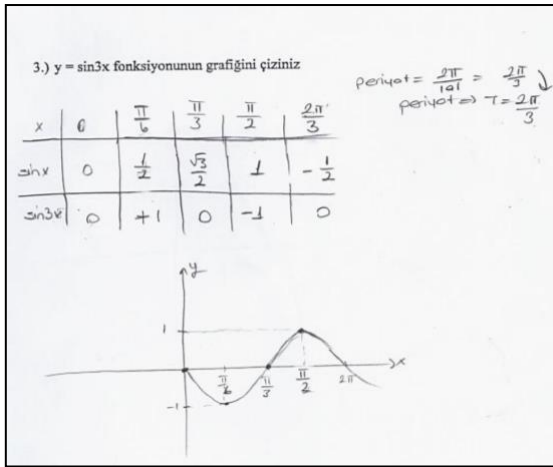 3.) y = sin3x fonksiyonunun grafiğini çiziniz
periyot = 2π/|a| = 2π/3
periyot ⇒ T = 2π/3
x | 0 | π/6 | π/3 | π/2 | 2π/3
sinx | 0 | 1/2 | √3/2 | 1 | -1/2
sin3x | 0 | +1 | 0 | -1 | 0
y
1
x
π/6 π/3 π/2 2π
-1